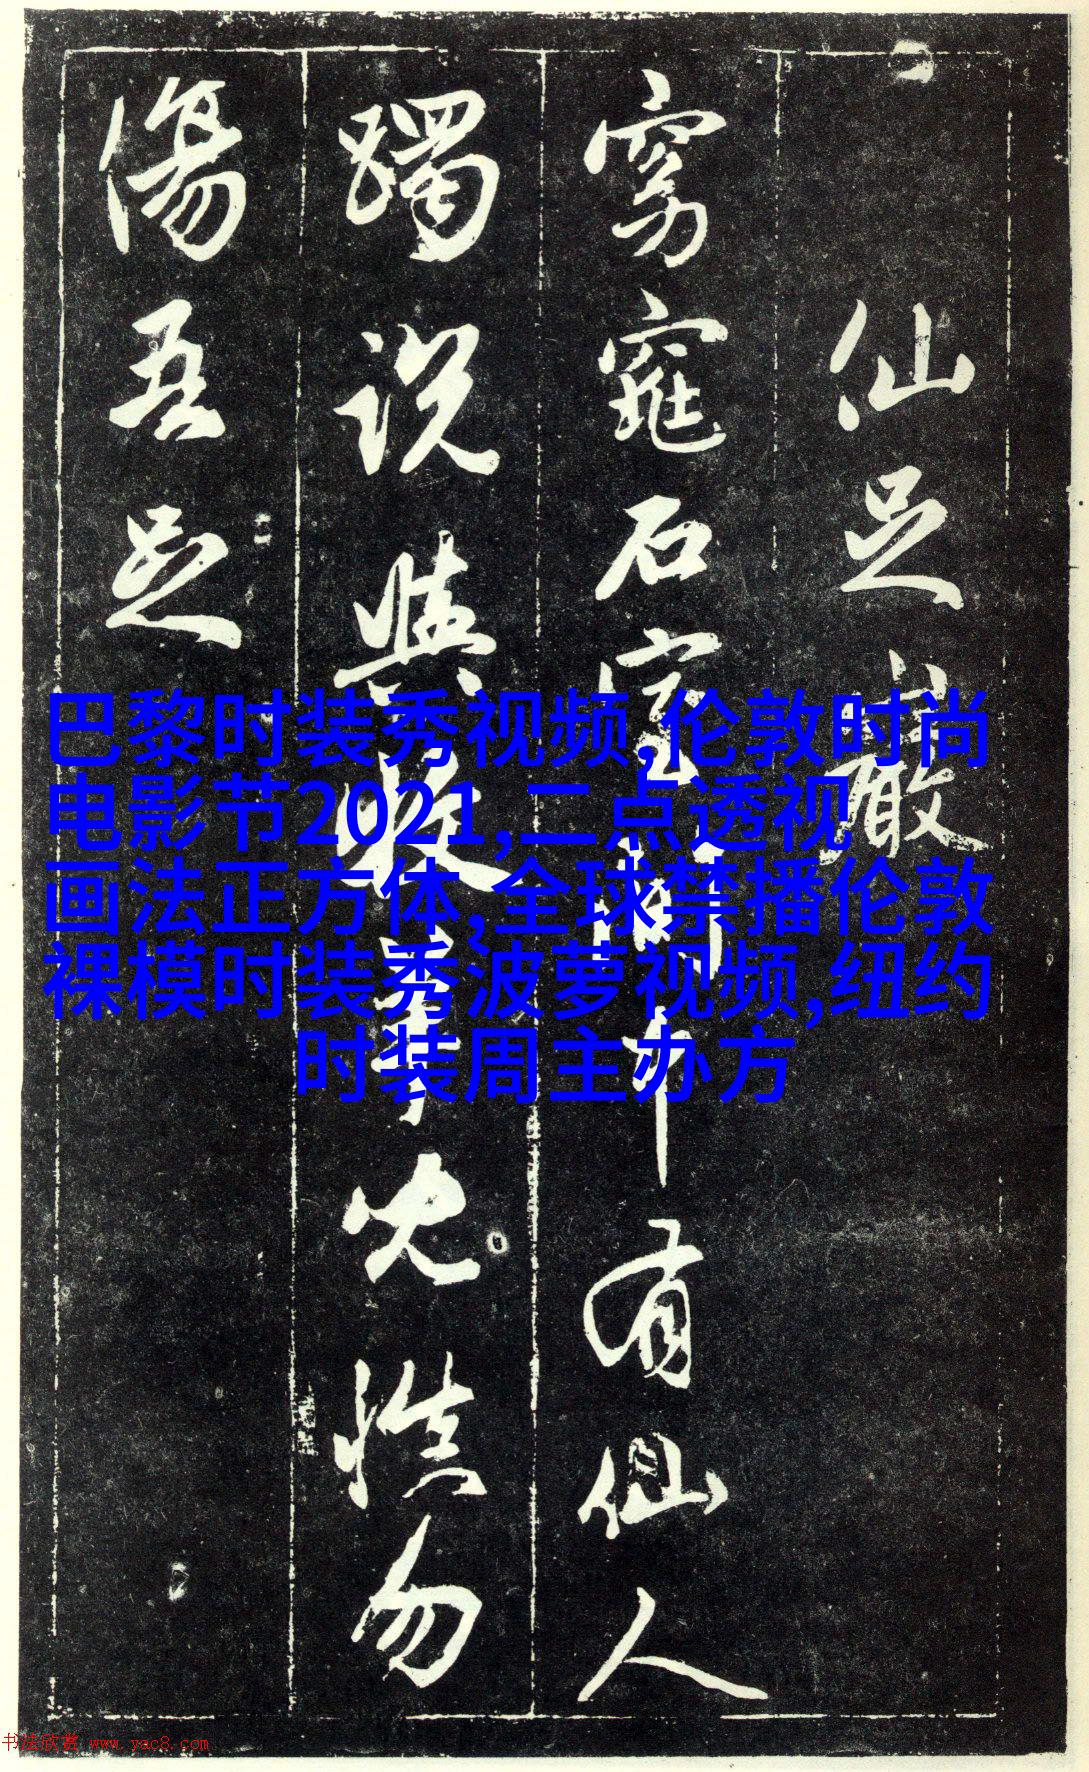 仙足巖
窈窕石室間中有仙人
躅說與牧羊兒慎勿
傷吾足
巴黎时装秀视频,伦敦时尚
电影节2021,二点透视
画法正方体,全球禁播伦敦
裸模时装秀波萝视频,纽约
时装周主办方
书法欣赏 www.yac8.com